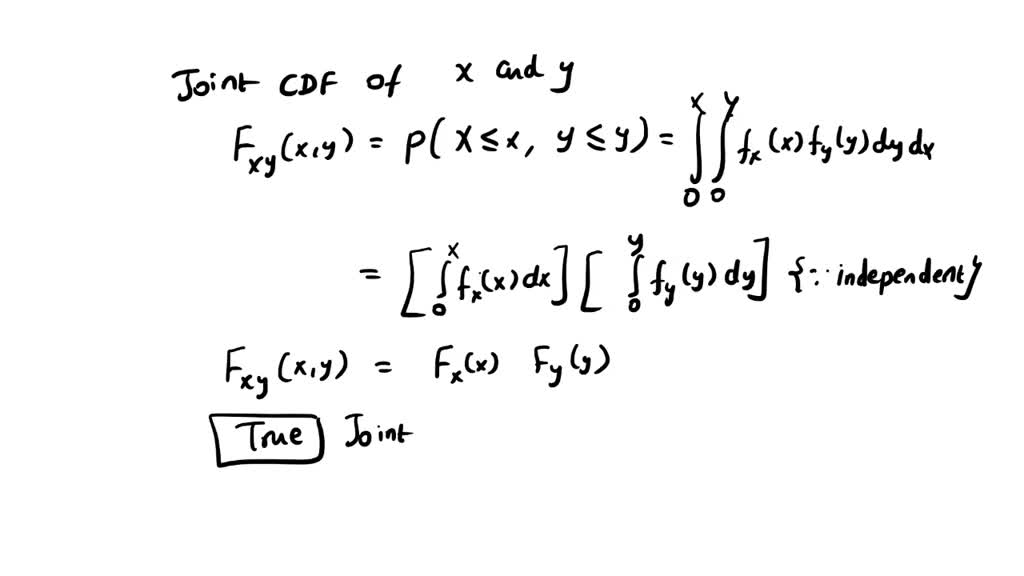 Joint CDF of x and y
F_xy(x,y) = P(X ≤ x, y ≤ y) = ∫_0^x ∫_0^y f_x(x) f_y(y) dy dx
= [∫_0^x f_x(x) dx] [∫_0^y f_y(y) dy] {∵ independent}
F_xy(x,y) = F_x(x) F_y(y)
True Joint